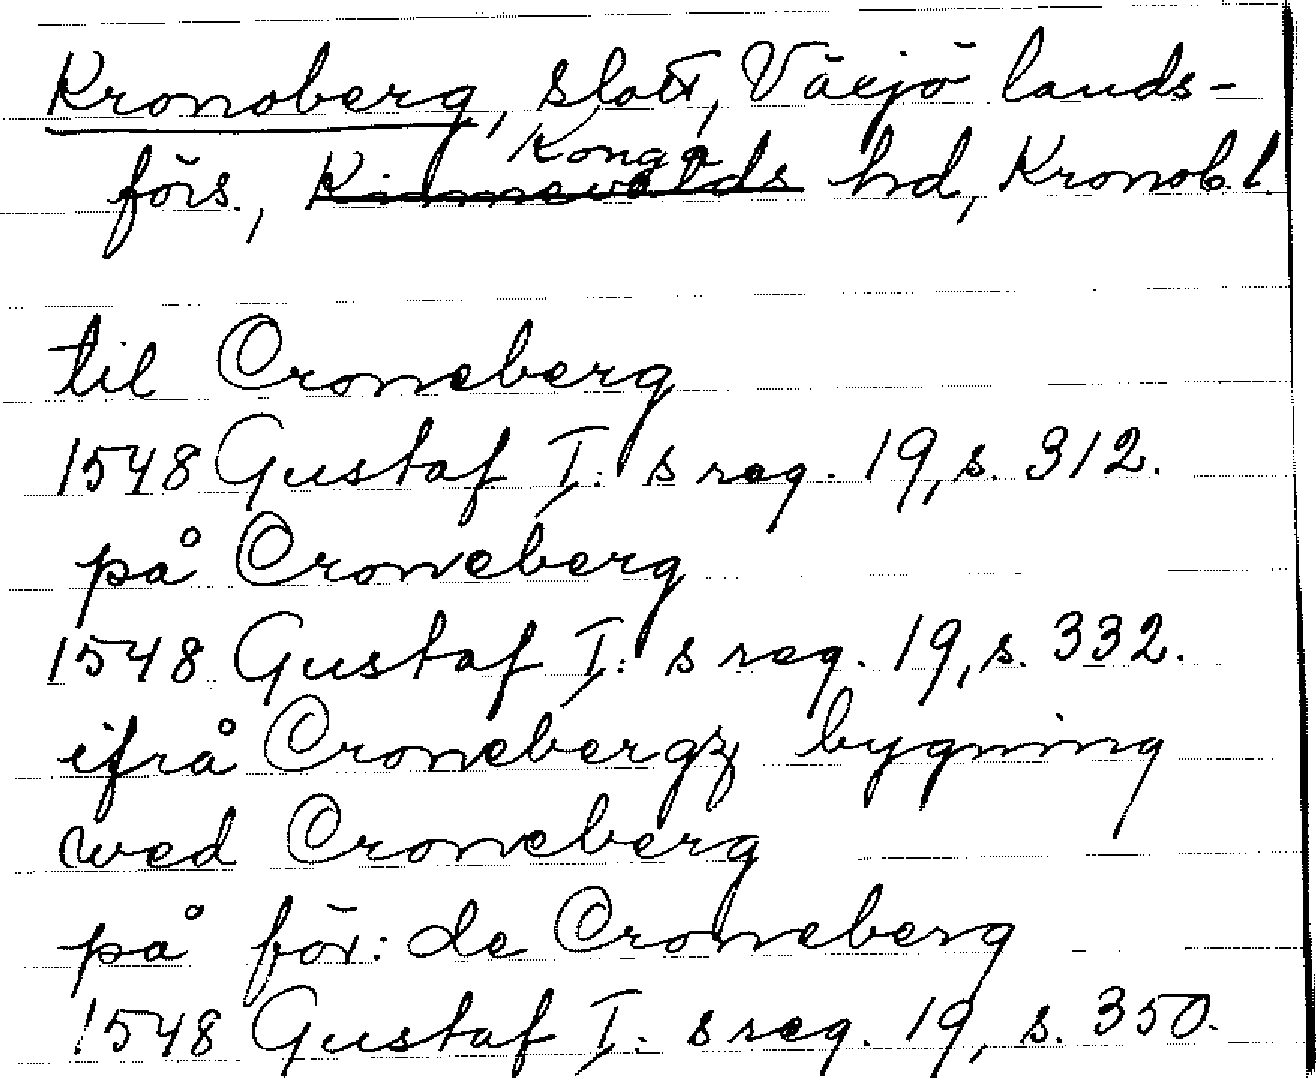 Kronoberg, slott, Växjö lands-
förs., Konga Kinnevalds hd, Kronob. l.
til Croneberg
1548 Gustaf I:s reg. 19, s. 312.
på Croneberg
1548 Gustaf I:s reg. 19, s. 332.
ifrå Cronebergz bygning
wed Croneberg
på för:de Croneberg
1548 Gustaf I:s reg. 19, s. 350.